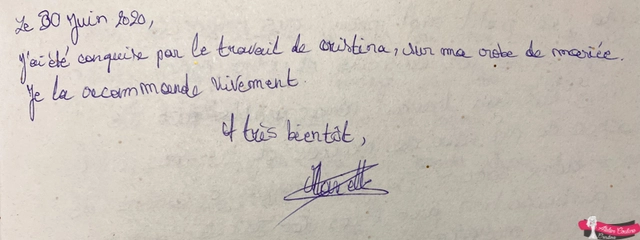 Le 30 Juin 2020,
J'ai été conquise par le travail de cristina, sur ma robe de mariée.
Je la recommande vivement.
A très bientôt,